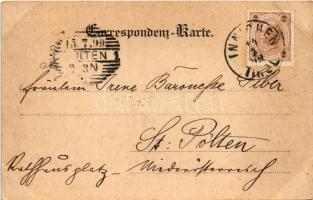 Correspondenz-Karte.
15.7.99
PÖLTEN
INNICHEN
Fräulein Irene Baronesse Biber
St. Pölten
Rathhausplatz – Niederösterreich